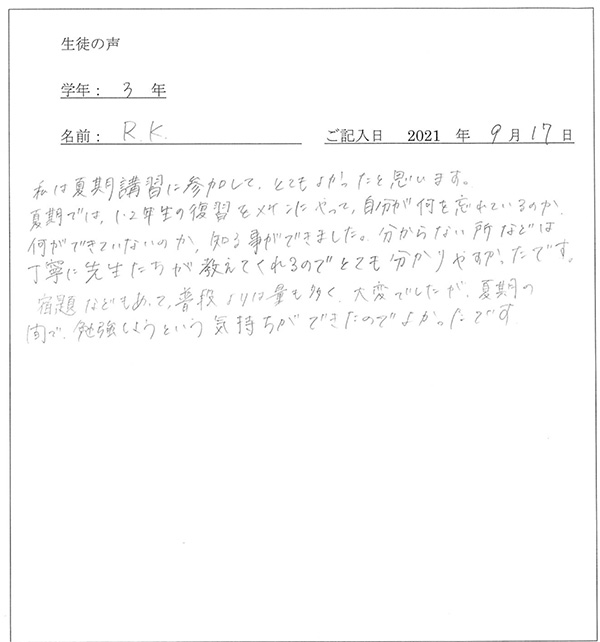 生徒の声
学年： 3 年
名前： R.K. ご記入日 2021 年 9 月 17 日
私は夏期講習に参加して、とてもよかったと思います。
夏期では、1・2年生の復習をメインにやって、自分が何を忘れているのか、
何ができていないのか、知る事ができました。分からない所などは
丁寧に先生たちが教えてくれるのでとても分かりやすかったです。
宿題などもあって、普段よりは量も多く、大変でしたが、夏期の
間で、勉強しようという気持ちができたのでよかったです